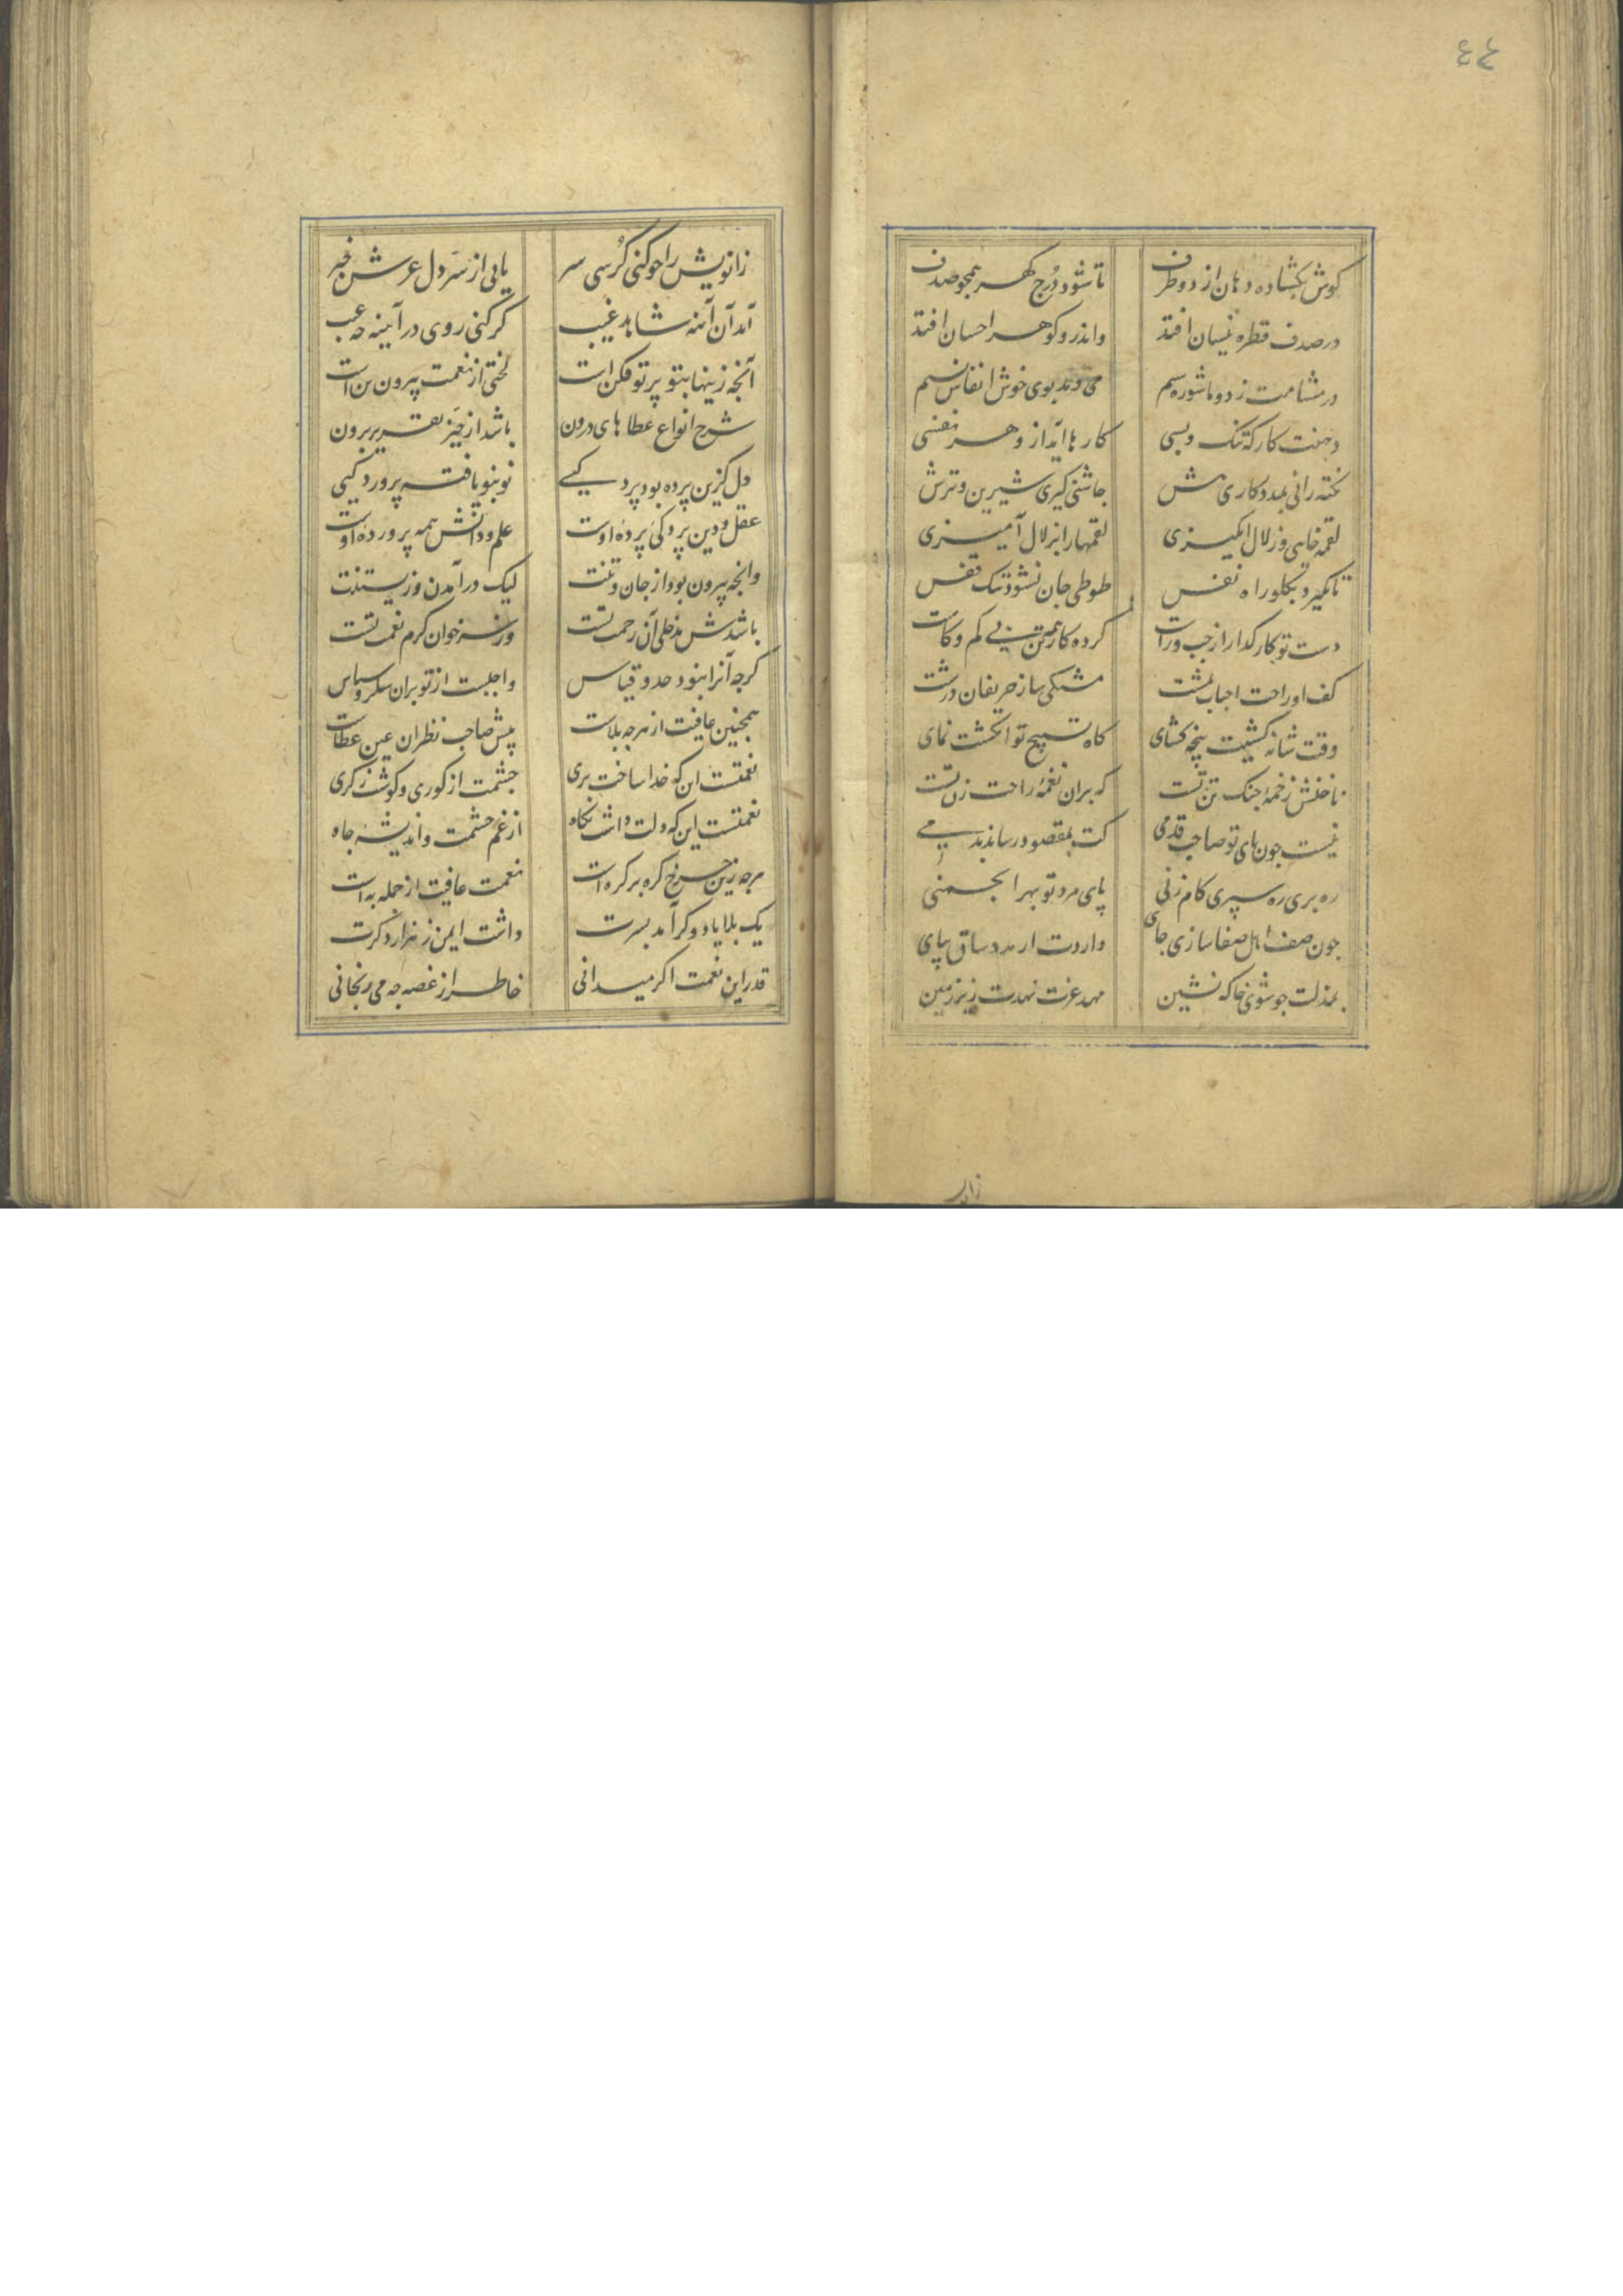 ٤٤
کوش بکشاده دهان از دو طرف تا شود درج کهر همچو صدف
در صدف قطره نیسان افتد واندرو کوهر احسان افتد
در مشامت ز دو ماشوره سیم می دمد بوی خوش انفاس نسیم
دهنت کارکه تنک و بسی کارها آید ازو هر نفسی
نکته رانی بمددکاری هش چاشنی کیری شیرین و ترش
لقمه خایی و زلال انکیزی لقمها را بزلال آمیزی
تا نکیرد بکلو راه نفس طوطی جان نشود تنک قفس
دست تو کارکذار از چپ و راست کرده کار همه تن بی کم و کاست
کف او راحت احباب بمشت مشتکی ساز حریفان درشت
وقت شانه کشیت پنجه کشای کاه تسبیح تو انکشت نمای
ناخنش زخمهٔ چنک تن تست که بران نغمهٔ راحت زن تست
نیست جون پای تو صاحب قدمی کت بمقصود رساند بدمی
ره بری ره سپری کام زنی پای مرد تو بهر انجمنی
جون صف اهل صفا سازی جای داردت از مدد ساق بپای
بمذلت جو شوی خاک نشین مهد عزت نهدت زیر زمین
زانو
زانویش را جو کنی کرسی سر یابی از سر دل عرش خبر
آمد آن آئنه شاهد غیب کر کنی روی در آیینه چه عیب
آنجه زینها بتو پرتو فکن است لختی از نعمت بیرون تن است
شرح انواع عطاهای درون باشد از حیز تقریر برون
دل کزین پرده بود پردکیی نو بنو یافته پروردکیی
عقل و دین پردکی پردهٔ اوست علم و دانش همه پروردهٔ اوست
وانجه بیرون بود از جان و تنت لیک در آمدن و زیستنت
باشدش مدخلی آن رحمت تست ور نه خوان کرم نعمت تست
کرجه آنرا نبود حد و قیاس واجبست از تو بران شکر و سپاس
همچنین عافیت از هرچه بلاست پیش صاحب نظران عین عطاست
نعمتست این که خدا ساخت بری جشمت از کوری و کوشت ز کری
نعمتست این که دلت داشت نکاه از غم حشمت و اندیشهٔ جاه
هرجه زین جرخ کره بر کره است نعمت عافیت از جمله به است
یک بلا یا دو کر آمد بسرت داشت ایمن ز هزار دکرت
قدر این نعمت اکر میدانی خاطر از غصه چه می رنجانی